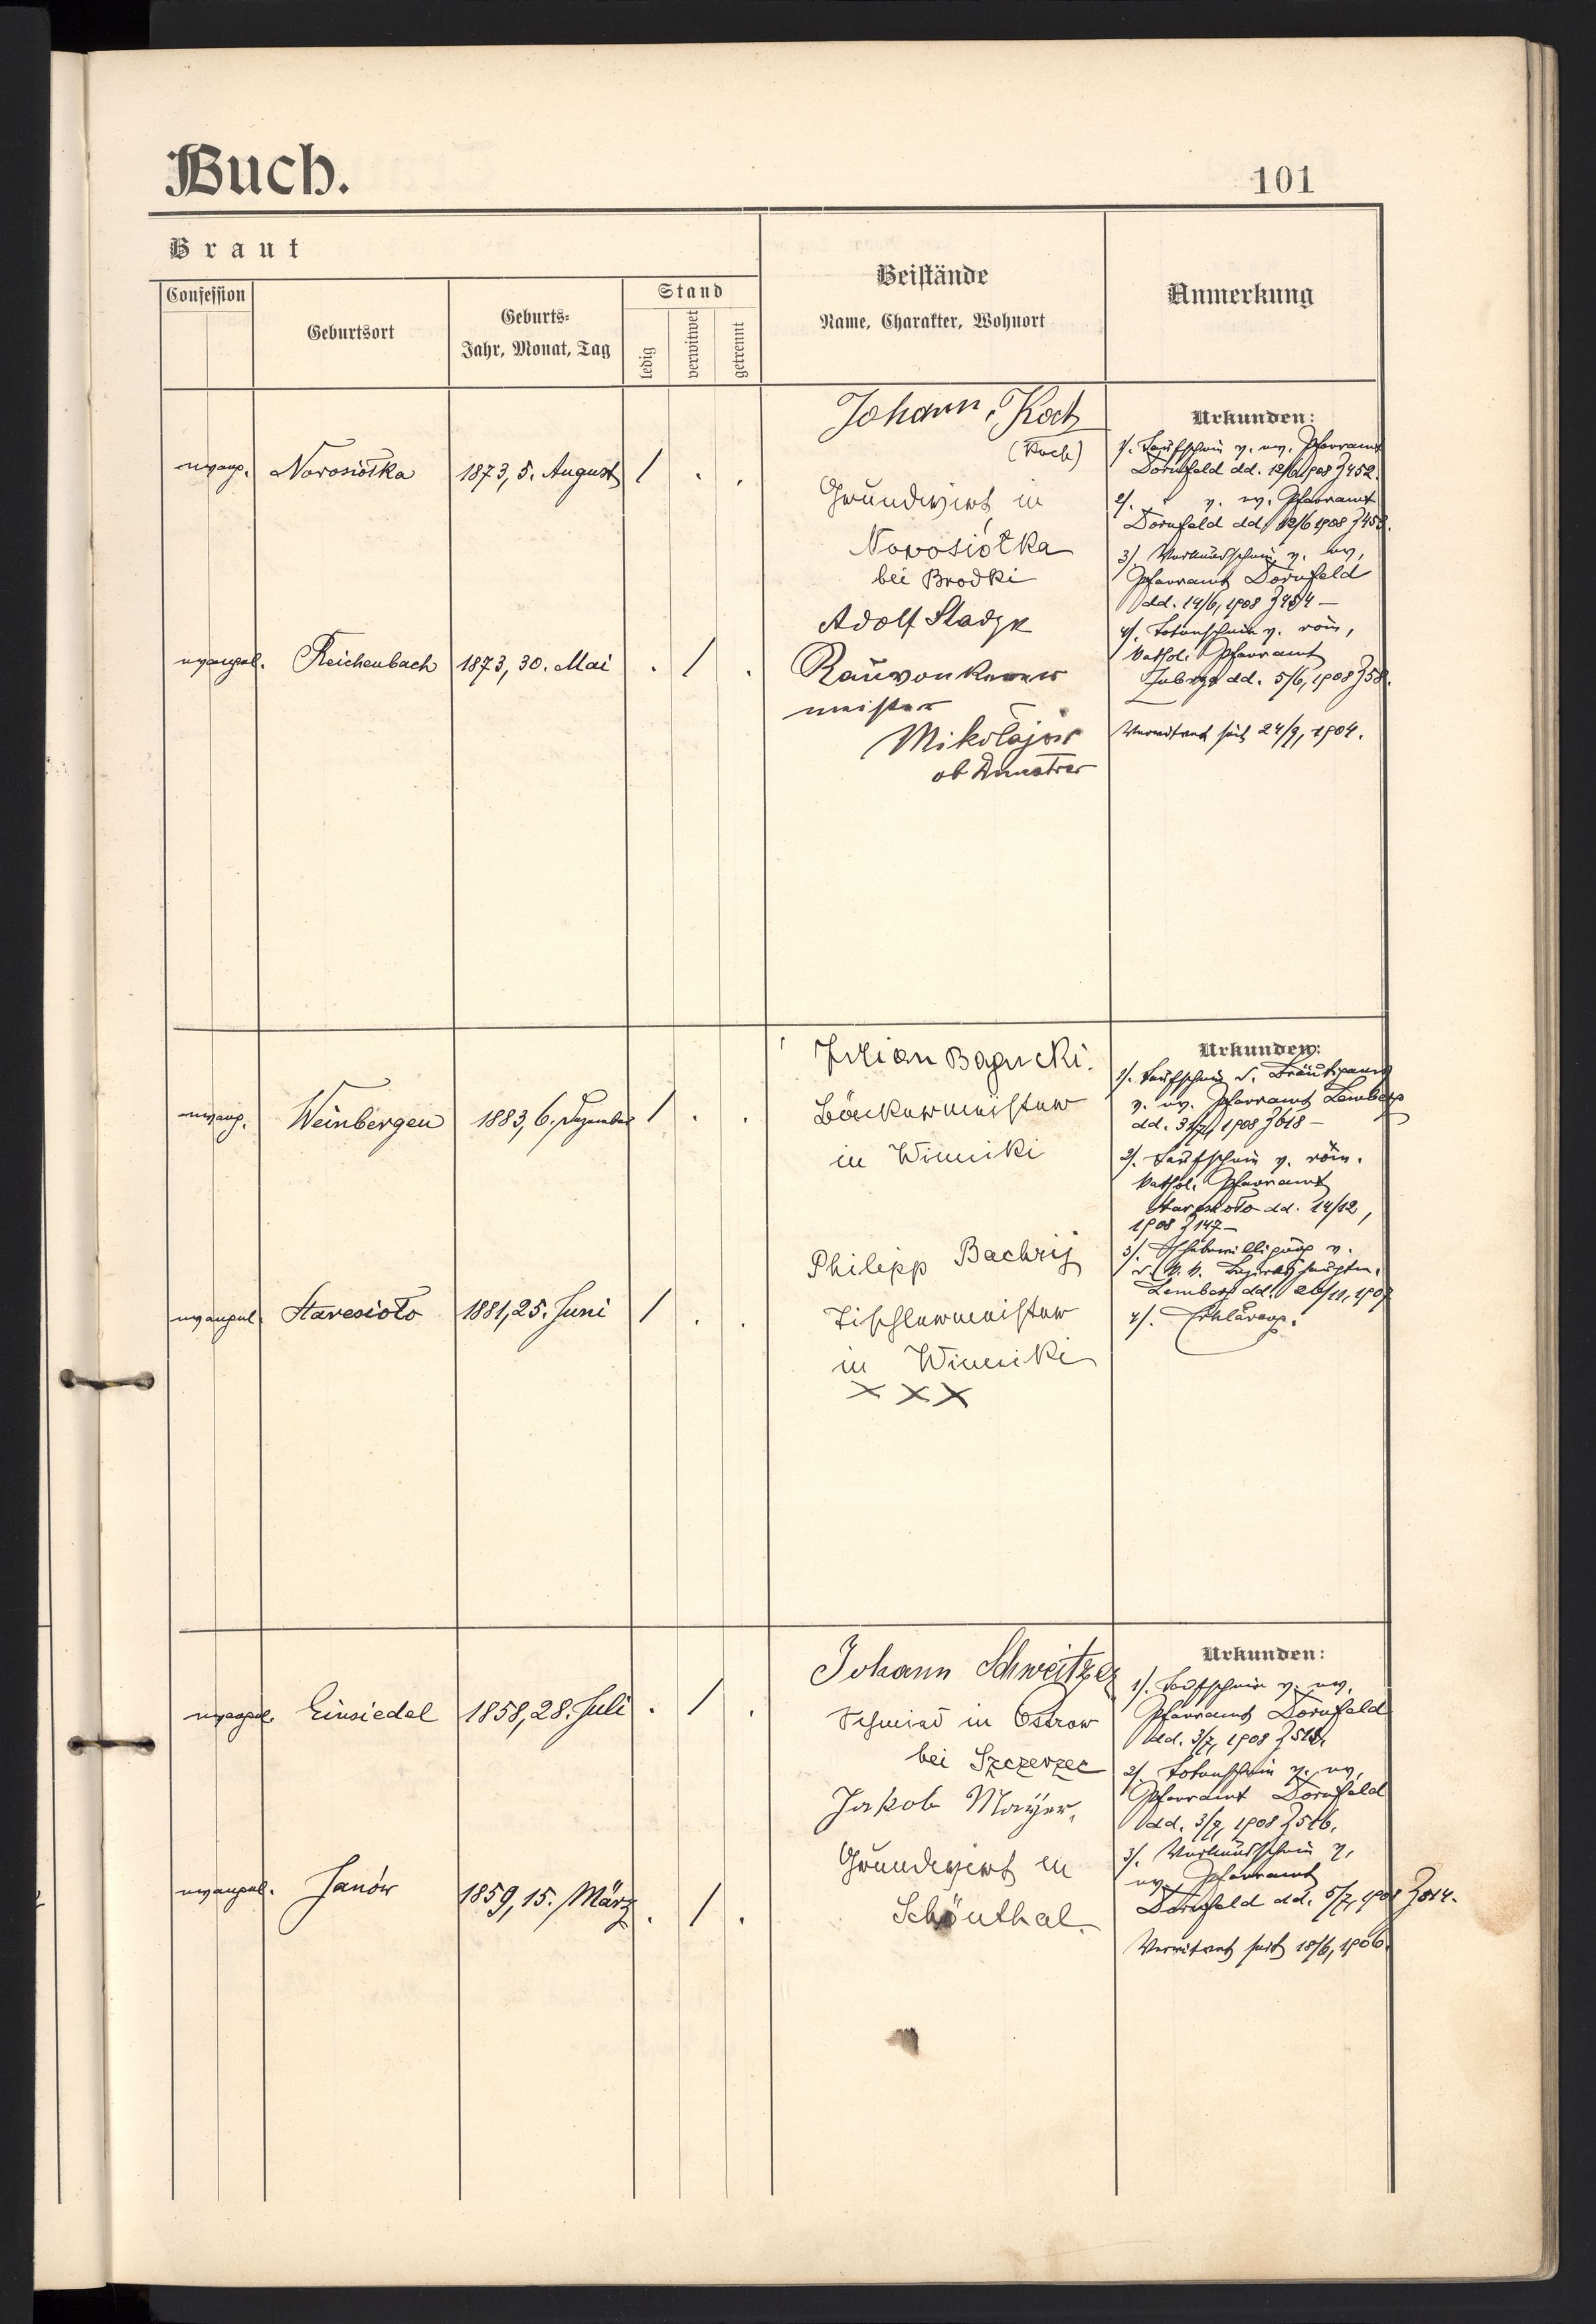 Buch.
101
Braut
Confession
Geburtsort
Geburts-
Jahr, Monat, Tag
Stand
ledig
verwitwet
getrennt
Beistände
Name, Charakter, Wohnort
Anmerkung
evang. Nowosiółka 1873, 5. August / . .
Johann Koch
(Koch)
Grundwirt in
Nowosiółka
bei Brodki
evangel. Reichenbach 1873, 30. Mai . / .
Adolf Sladzk
meister
Mikołajów
Urkunden:
1/. Taufschein v. ev. Pfarramt
Dornfeld dd. 12/6 1908 Z 452.
2/. " v. ev. Pfarramt
Dornfeld dd. 12/6 1908 Z 453.
3/. Verkündschein v. ev.
Pfarramt Dornfeld
dd. 14/6, 1908 Z 454 –
4/. Totenschein v. röm.
kathol. Pfarramt
dd. 5/6, 1908 Z 58.
Verwitwet seit 24/9, 1904.
evang. Weinbergen 1883, 6. Dezember / . .
Julian Bagucki.
Bäckermeister
in Winniki
evangel. Staresioło 1881, 25. Juni / . .
Philipp Bachrij
Tischlermeister
in Winniki
XXX
Urkunden:
1/. Taufschein d. Bräutigams
v. ev. Pfarramt Lemberg
dd. 31/7, 1908 Z 618 –
2/. Taufschein v. röm.
kathol. Pfarramt
Staresioło dd. 14/12,
1908 Z 147 –
3/. Ehebewilligung v.
d. k. k. Bezirkshauptm.
Lemberg dd. 26/11, 1907
4/. Erklärung.
evangel. Einsiedel 1858, 28. Juli . / .
Johann Schweitzer
Schmied in Ostrow
bei Szczerzec
evangel. Janów 1859, 15. März . / .
Jakob Mayer,
Grundwirt in
Schönthal.
Urkunden:
1/. Taufschein v. ev.
Pfarramt Dornfeld
dd. 3/7, 1908 Z 515.
2/. Totenschein v. ev.
Pfarramt Dornfeld
dd. 3/7, 1908 Z 516.
3/. Verkündschein v.
ev. Pfarramt
Dornfeld dd. 5/7, 1908 Z 514.
Verwitwet seit 18/6, 1906.